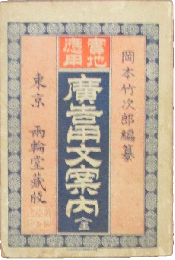 實地
應用
岡本竹次郎編纂
廣告用文案内 全
東京 兩輪堂藏版